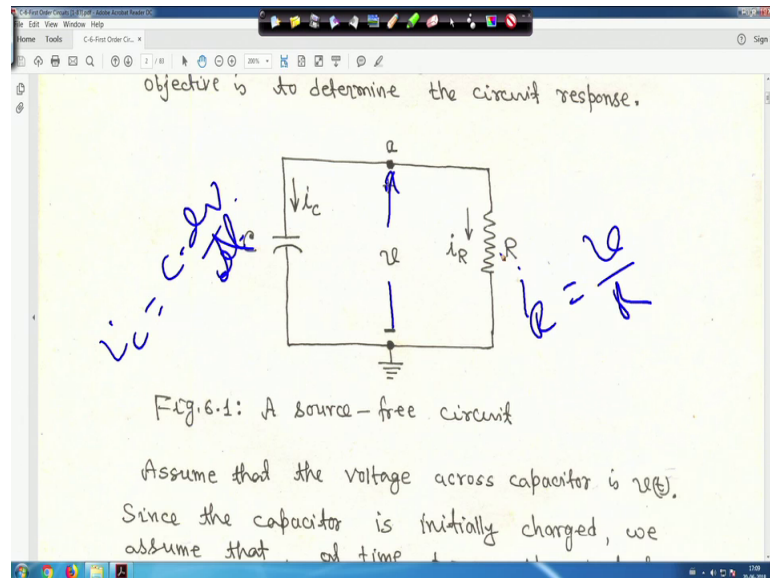 C-6-First Order Circuits [1-83].pdf - Adobe Acrobat Reader DC
File Edit View Window Help
Home Tools C-6-First Order Cir... × Sign
2 / 83 200%
objective is to determine the circuit response.
a
i_c
C
v
i_R
R
i_c = C · dv/dt
i_R = v/R
Fig.6.1: A source-free circuit
Assume that the voltage across capacitor is v(t).
Since the capacitor is initially charged, we
assume that at time
17:09